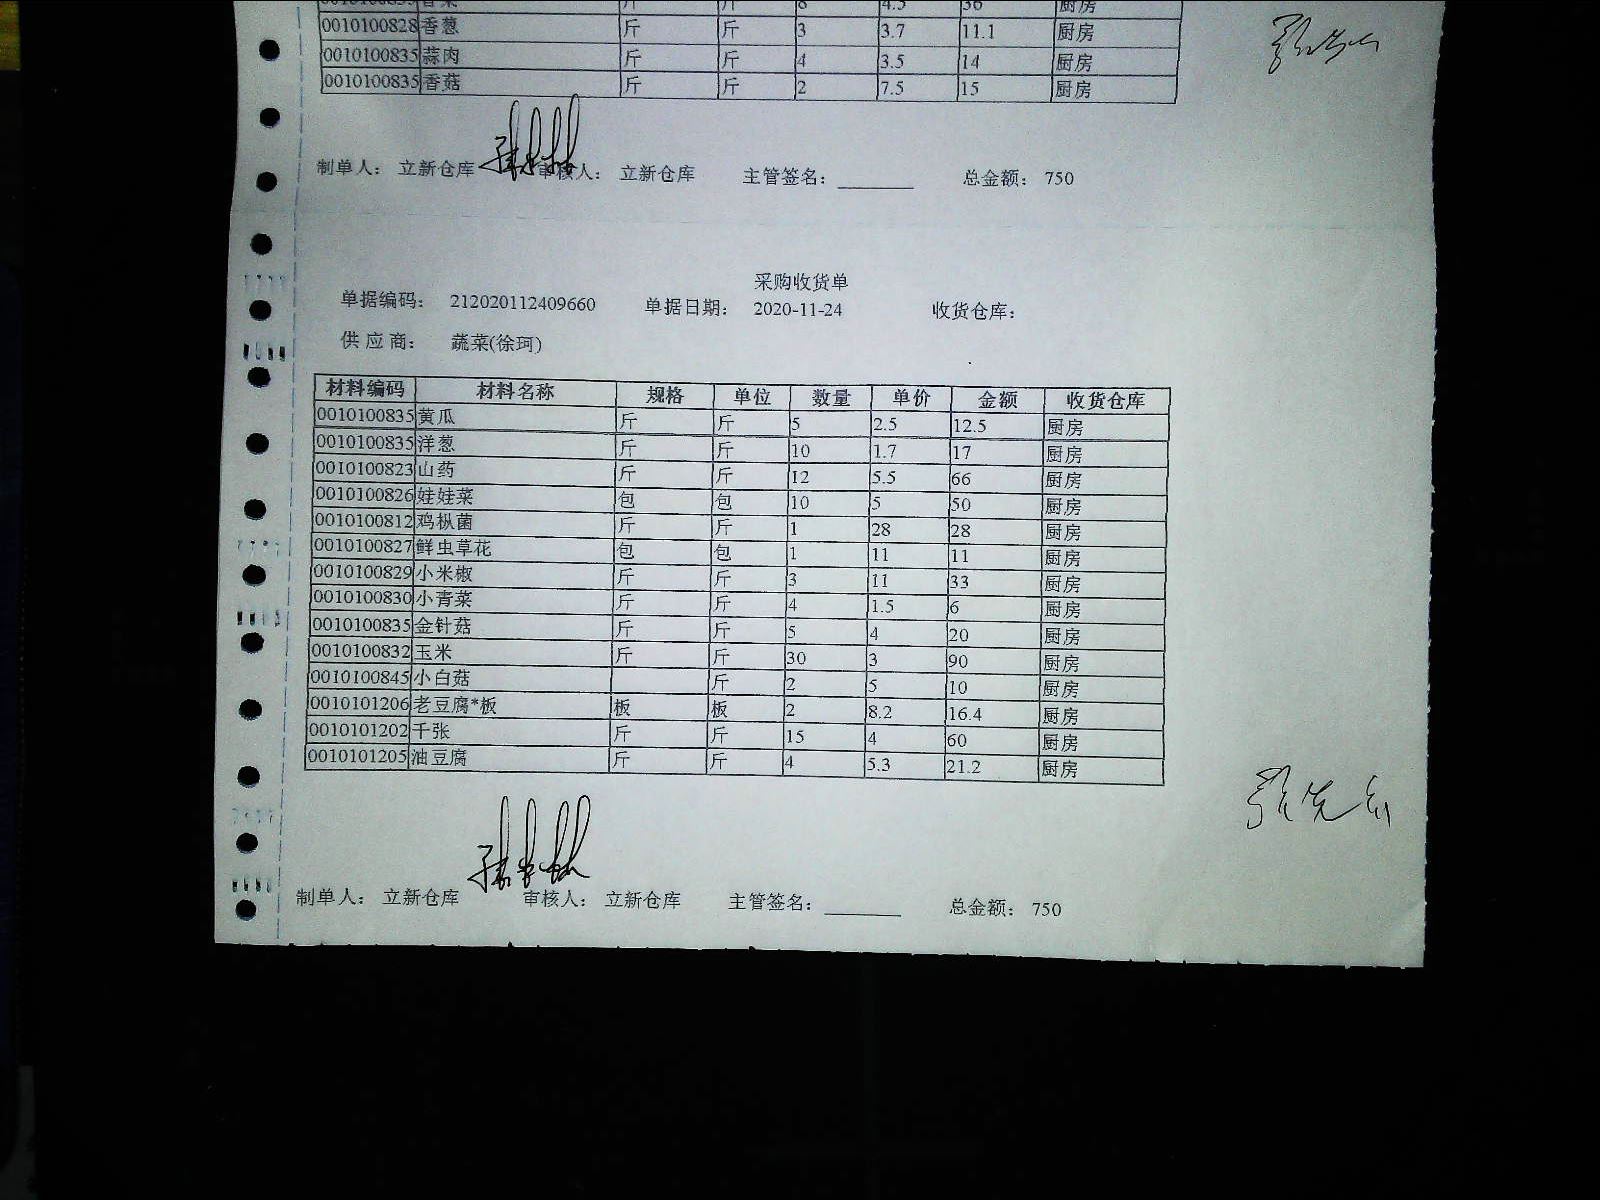 斤 斤 8 4.5 36 厨房
0010100828 香葱 斤 斤 3 3.7 11.1 厨房
0010100835 蒜肉 斤 斤 4 3.5 14 厨房
0010100835 香菇 斤 斤 2 7.5 15 厨房
制单人： 立新仓库 审核人： 立新仓库 主管签名：_______ 总金额： 750
采购收货单
单据编码： 212020112409660 单据日期： 2020-11-24 收货仓库：
供应商： 蔬菜(徐珂)
材料编码 材料名称 规格 单位 数量 单价 金额 收货仓库
0010100835 黄瓜 斤 斤 5 2.5 12.5 厨房
0010100835 洋葱 斤 斤 10 1.7 17 厨房
0010100823 山药 斤 斤 12 5.5 66 厨房
0010100826 娃娃菜 包 包 10 5 50 厨房
0010100812 鸡枞菌 斤 斤 1 28 28 厨房
0010100827 鲜虫草花 包 包 1 11 11 厨房
0010100829 小米椒 斤 斤 3 11 33 厨房
0010100830 小青菜 斤 斤 4 1.5 6 厨房
0010100835 金针菇 斤 斤 5 4 20 厨房
0010100832 玉米 斤 斤 30 3 90 厨房
0010100845 小白菇 斤 2 5 10 厨房
0010101206 老豆腐*板 板 板 2 8.2 16.4 厨房
0010101202 千张 斤 斤 15 4 60 厨房
0010101205 油豆腐 斤 斤 4 5.3 21.2 厨房
制单人： 立新仓库 审核人： 立新仓库 主管签名：_______ 总金额： 750